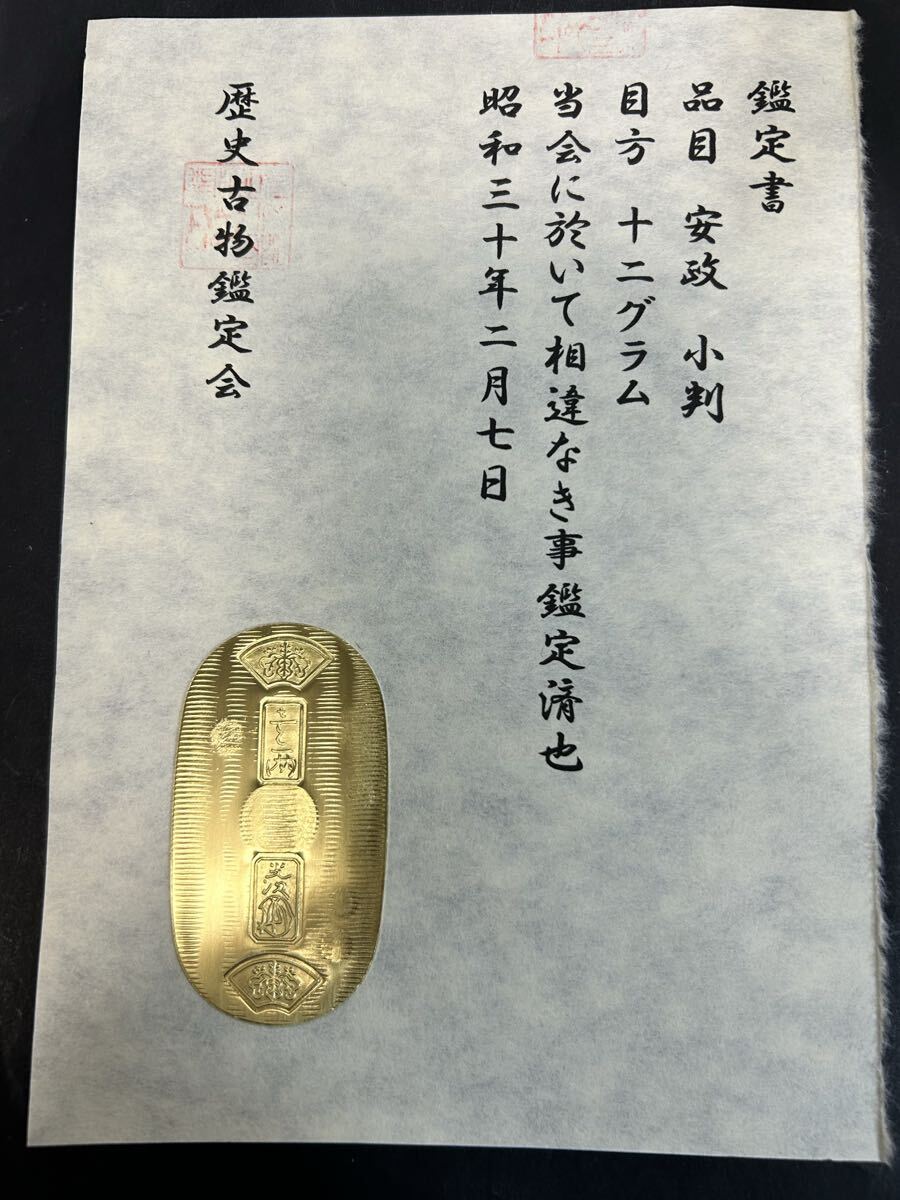 鑑定書
品目 安政 小判
目方 十二グラム
当会に於いて相違なき事鑑定済也
昭和三十年二月七日
歴史古物鑑定会